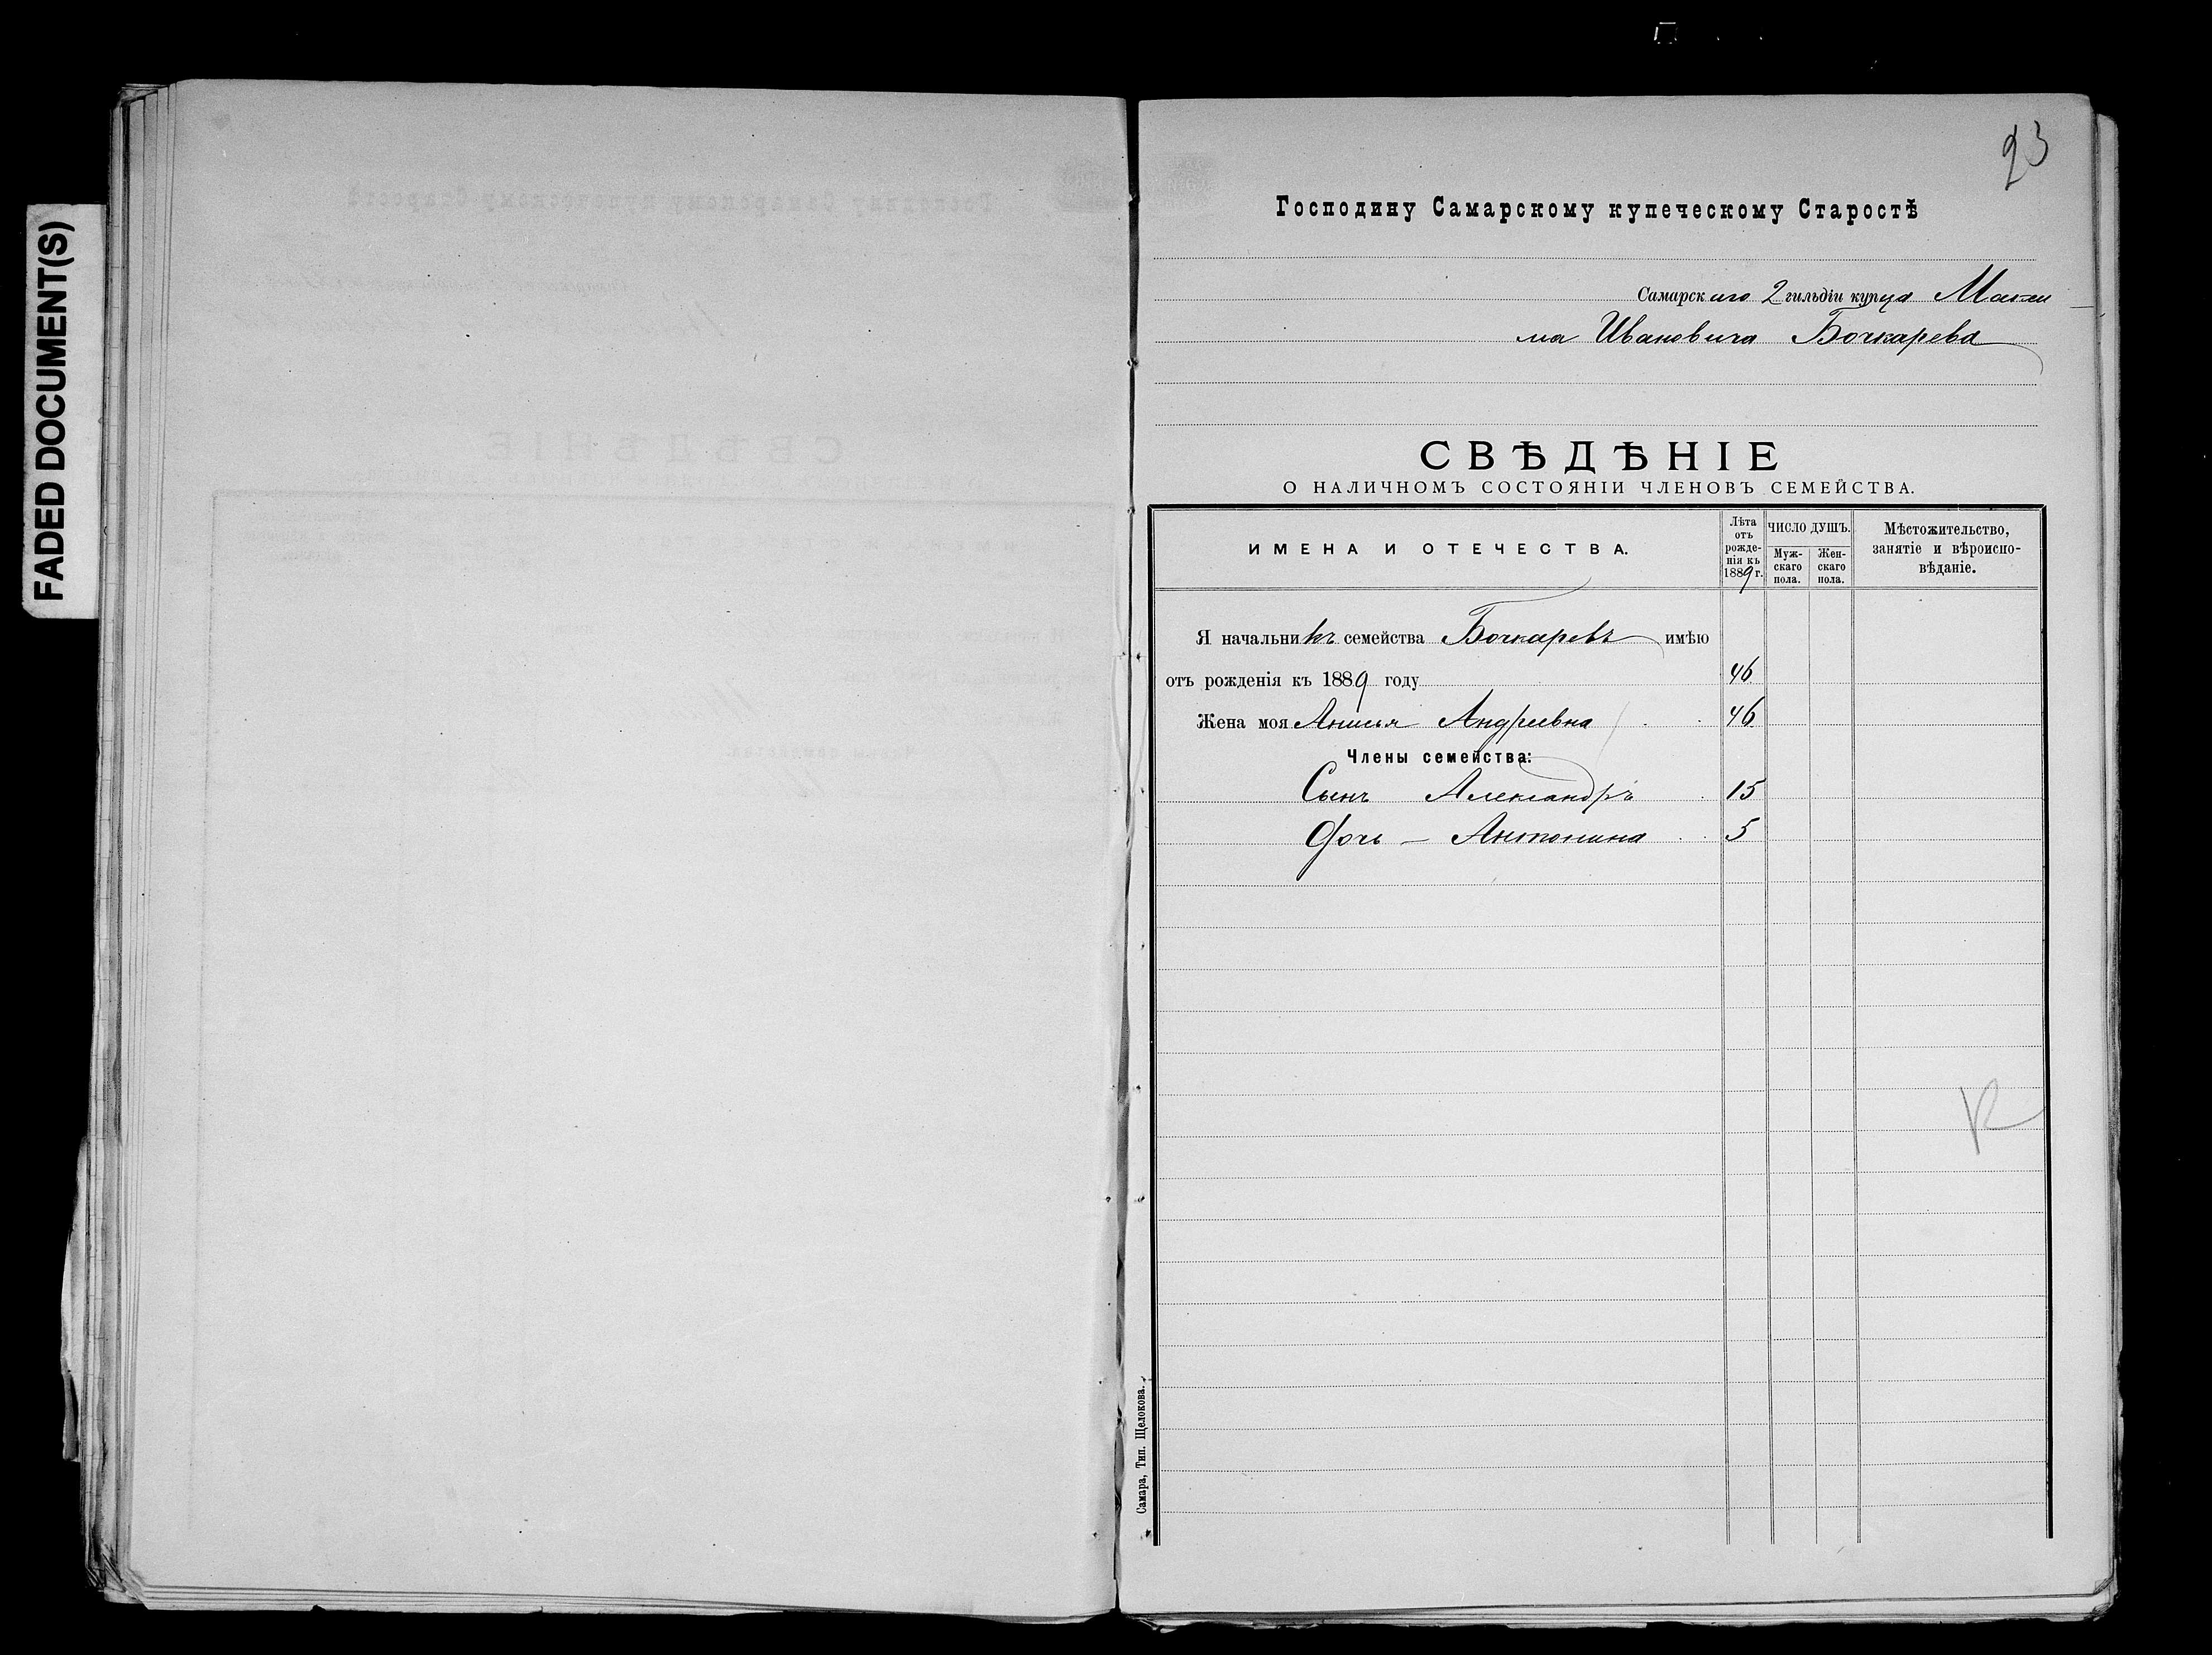 FADED DOCUMENT(S)
23
Господину Самарскому купеческому Старостѣ
Самарскаго 2 гильдіи купца Макси
ма Ивановича Бочкарева
СВѢДѢНІЕ
О НАЛИЧНОМЪ СОСТОЯНІИ ЧЛЕНОВЪ СЕМЕЙСТВА.
ИМЕНА И ОТЕЧЕСТВА.
Лѣта
отъ
рожде-
нія къ
1889 г.
ЧИСЛО ДУШЪ.
Муж-
скаго
пола.
Жен-
скаго
пола.
Мѣстожительство,
занятіе и вѣроиспо-
вѣданіе.
Я начальникъ семейства Бочкаревъ имѣю
отъ рожденія къ 1889 году 46
Жена моя Анисья Андреевна 46
Члены семейства:
Сынъ Александръ 15
Дочь — Антонина 5
Самара, Тип. Щелокова.